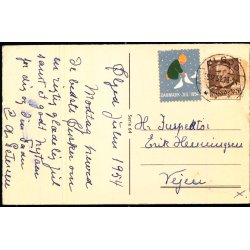 Elgod Julen 1954
Modtag herved
De bedste Ønsker om
en rigtig glædelig Jul
samt et godt Nytaar
for dig og Din Fader
C. A. Petersen
Serie 64
DANMARK · JUL 1954
Hr. Inspektør
Erik Henningsen
Vejen